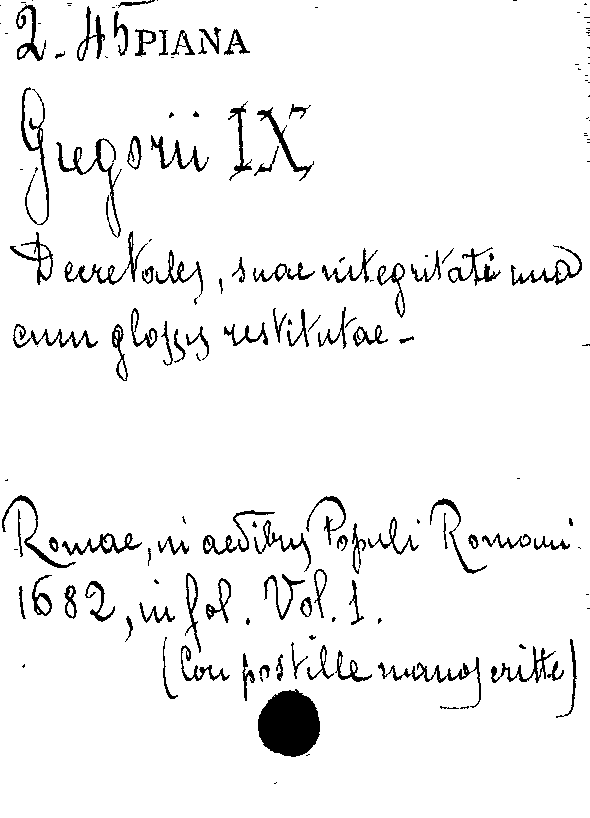 2. 45 PIANA
Gregorii IX
Decretales, suae integritati una
cum glossis restitutae -
Romae, in aedibus Populi Romani
1682, in fol. Vol. 1.
(Con postille manoscritte)